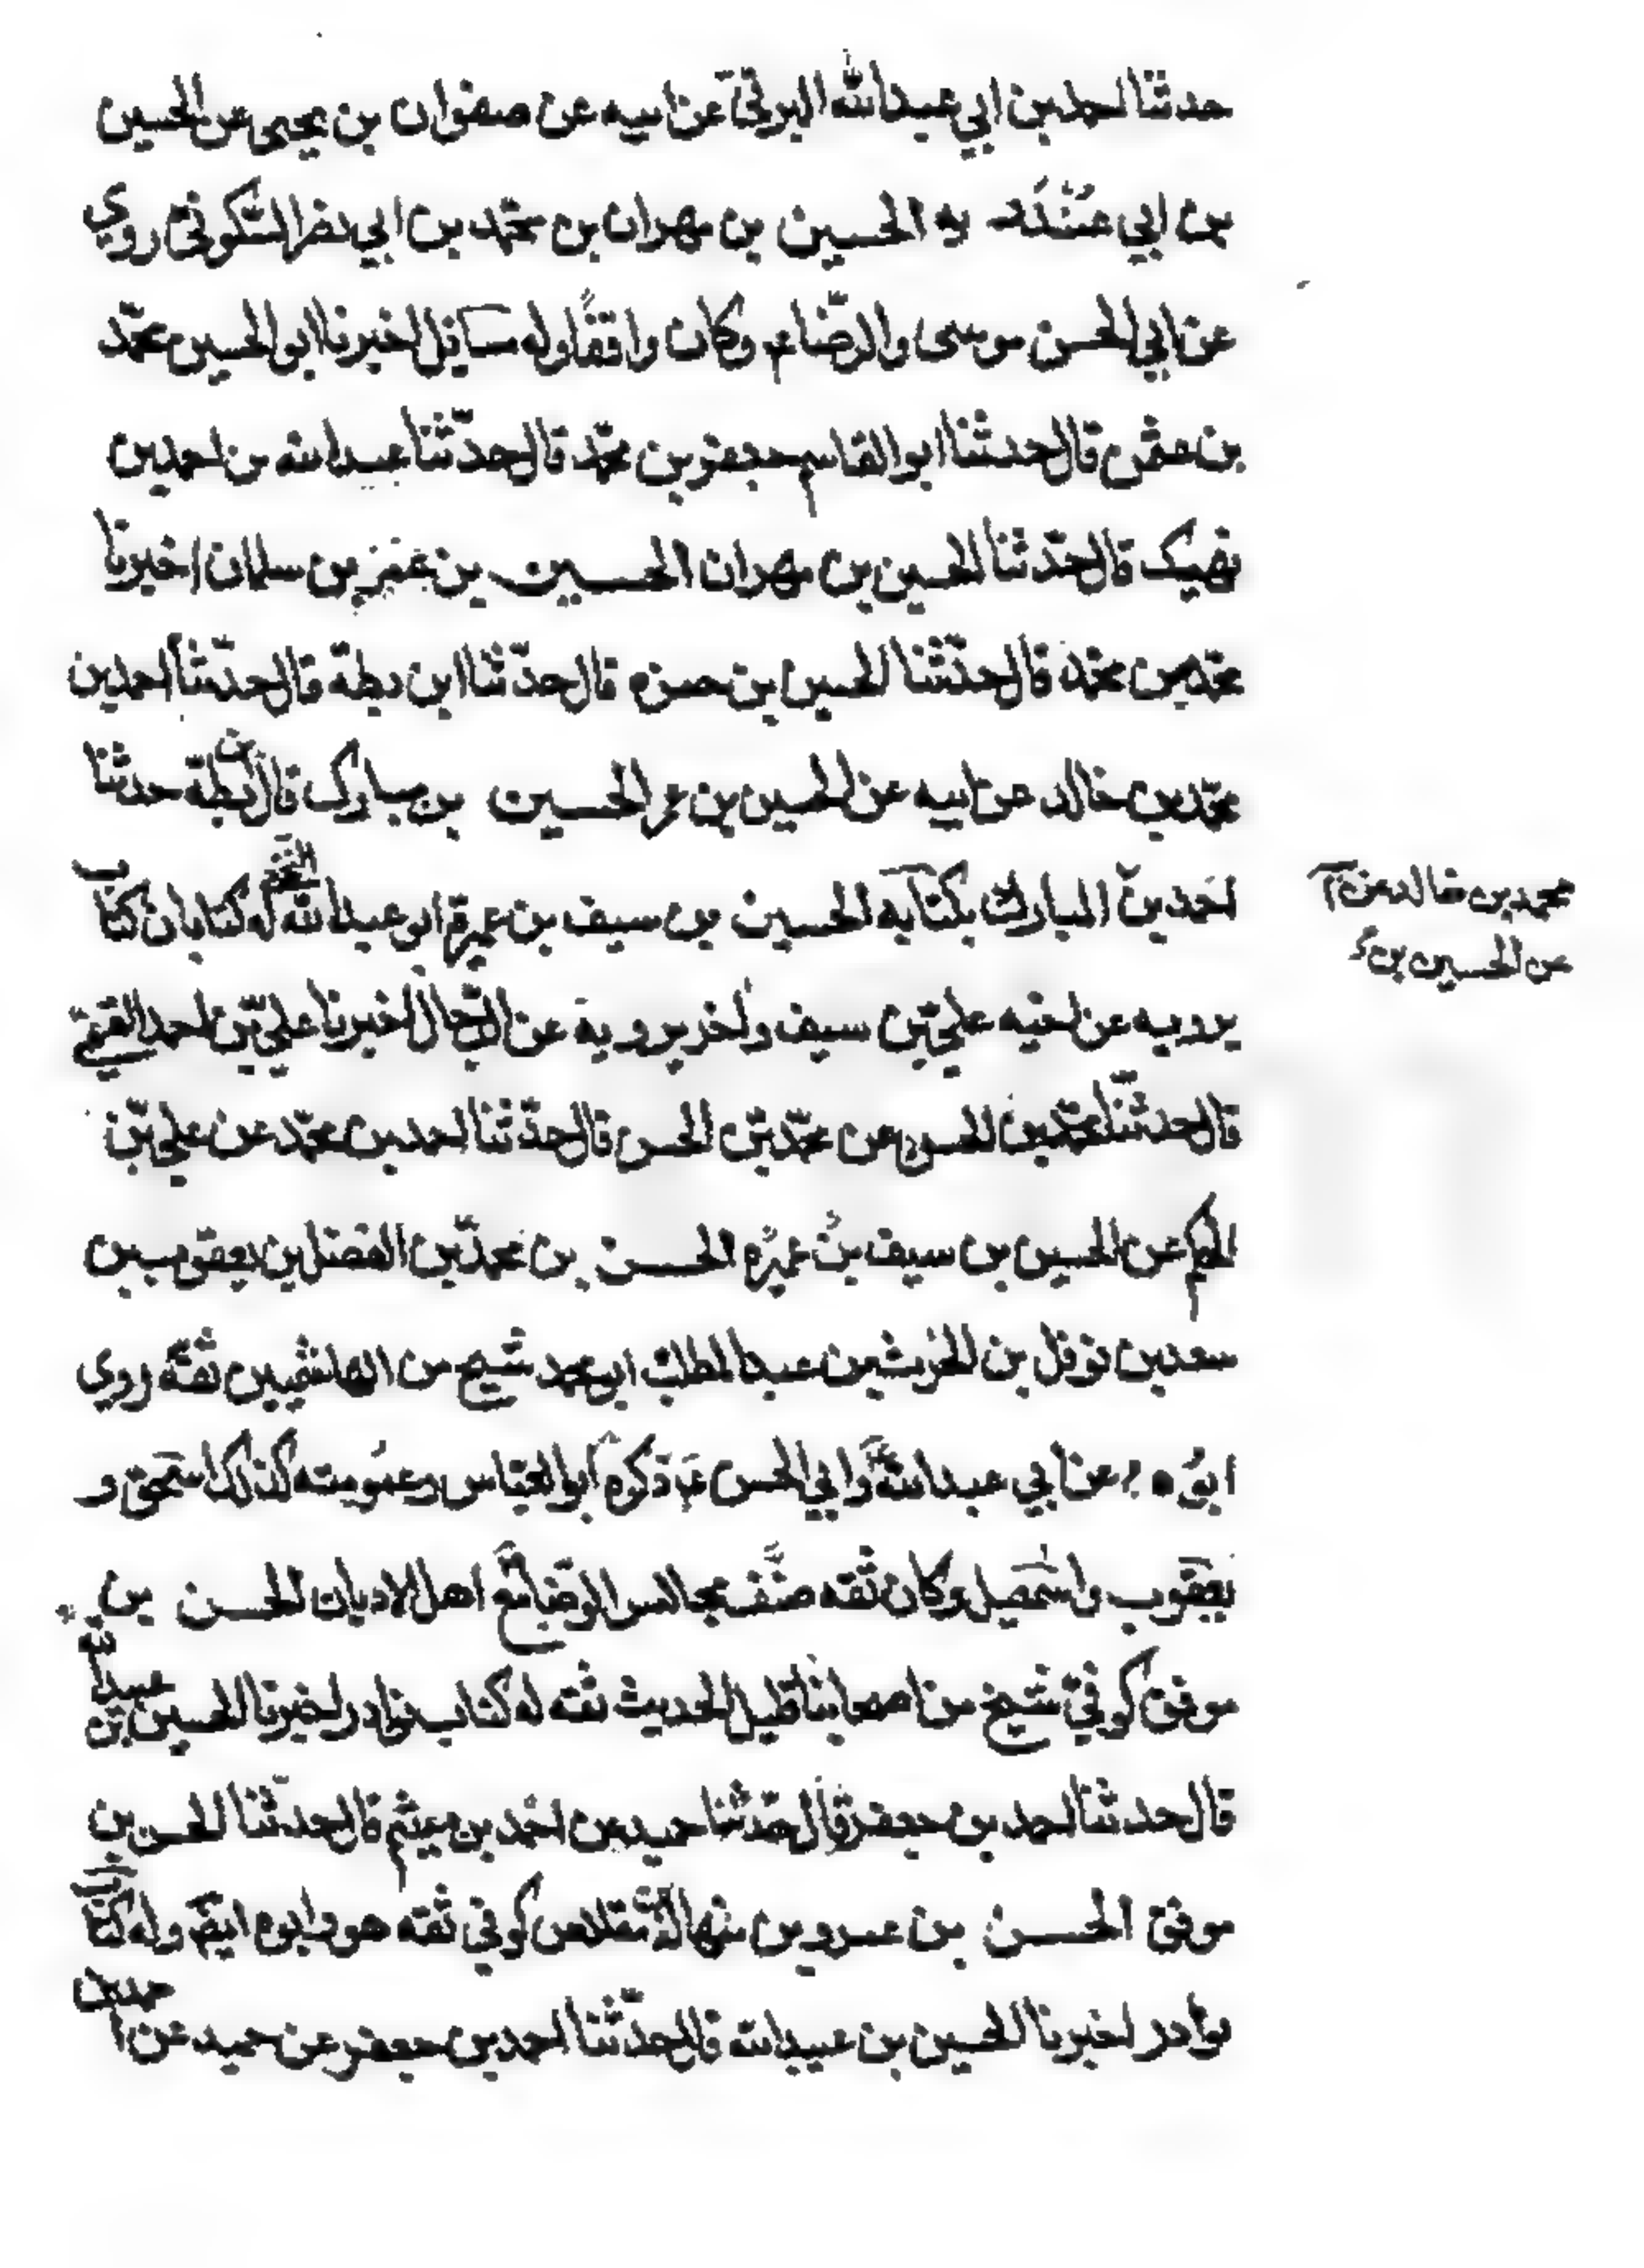 حدثنا احمد بن ابي عبدالله البرقيّ عن ابيه عن صفوان بن يحيى عن الحسين
بن ابي غُنْدَر به الحسين بن مهران بن محمّد بن ابي نصر السّكونيّ روي
عن ابي الحسن موسى والرّضا م وكان واقفًا وله مسائل اخبرنا ابو الحسين محمّد
بن عثمن قال حدثنا ابو القاسم جعفر بن محمّد قال حدّثنا عبيدالله بن احمد بن
نهيك قال حدّثنا الحسين بن مهران الحسين بن عنبز بن سلمان اخبرنا
محمّد بن محمّد قال حدّثنا الحسين بن حمزه قال حدّثنا ابن بطّة قال حدّثنا احمد بن
محمّد بن خالد عن ابيه عن الحسين بن عمر الحسين بن مبارك قال ابن بطة حدثنا
احمد بن المبارك بكتابه الحسين بن سيف بن عميرة ابو عبدالله النخعي له كتابان كتاب
محمد بن خالد عن ا
عن الحسين بن
يرويه عن اخيه عليّ بن سيف واخر يرويه عن الرّجال اخبرنا عليّ بن احمد القميّ
قال حدثنا محمّد بن الحسن عن محمّد بن الحسن قال حدّثنا احمد بن محمّد عن عليّ بن
الحكم عن الحسين بن سيف بن عميره الحسن بن محمّد بن الفضل بن يعقوب بن
سعد بن نوفل بن الحرث بن عبدالمطلب ابو محمد شيخ من الهاشميين ثقة روي
ابوه عن ابي عبدالله وابي الحسن ع ذكره ابو العبّاس وعمومته كذلك اسحق و
يعقوب واسمعيل وكان ثقه صنّف مجالس الرّضا مع اهل الاديان الحسن بن
موفق كوفيّ شيخ من اصحابنا قليل الحديث ثقه له كتاب نوادر اخبرنا الحسين بن عبيدالله
قال حدثنا احمد بن جعفر قال حدّثنا حميد عن احمد بن ميثم قال حدّثنا الحسن بن
موفق الحسن بن عمرو بن منهال بن مقلاص كوفي ثقه هو وابوه ايضا وله كتاب
نوادر اخبرنا الحسين بن عبيدالله قال حدّثنا احمد بن جعفر عن حميد عن احمد بن